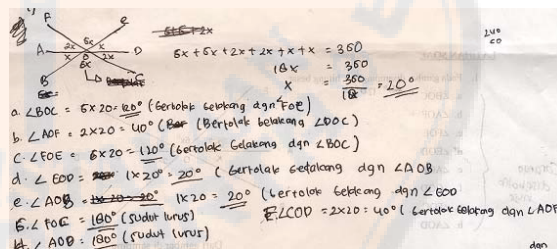 F e
A 2x 6x x D
x O 2x
B 6x C
6x+6x+2x+2x+x+x = 360
18x = 360
x = 360/18 = 20°
240
a. ∠BOC = 6×20 = 120° (bertolak belakang dgn FOE)
b. ∠AOF = 2×20 = 40° (Bertolak belakang ∠DOC)
C. ∠FOE = 6×20 = 120° (bertolak belakang dgn ∠BOC)
d. ∠EOD = 1×20 = 20° (bertolak belakang dgn ∠AOB
e. ∠AOB 1×20 = 20° (bertolak belakang dgn ∠EOD
∠COD = 2×20 = 40° (bertolak belakang dgn ∠AOF
∠FOC = 180° (sudut lurus)
∠AOD = 180° (sudut lurus)
dan